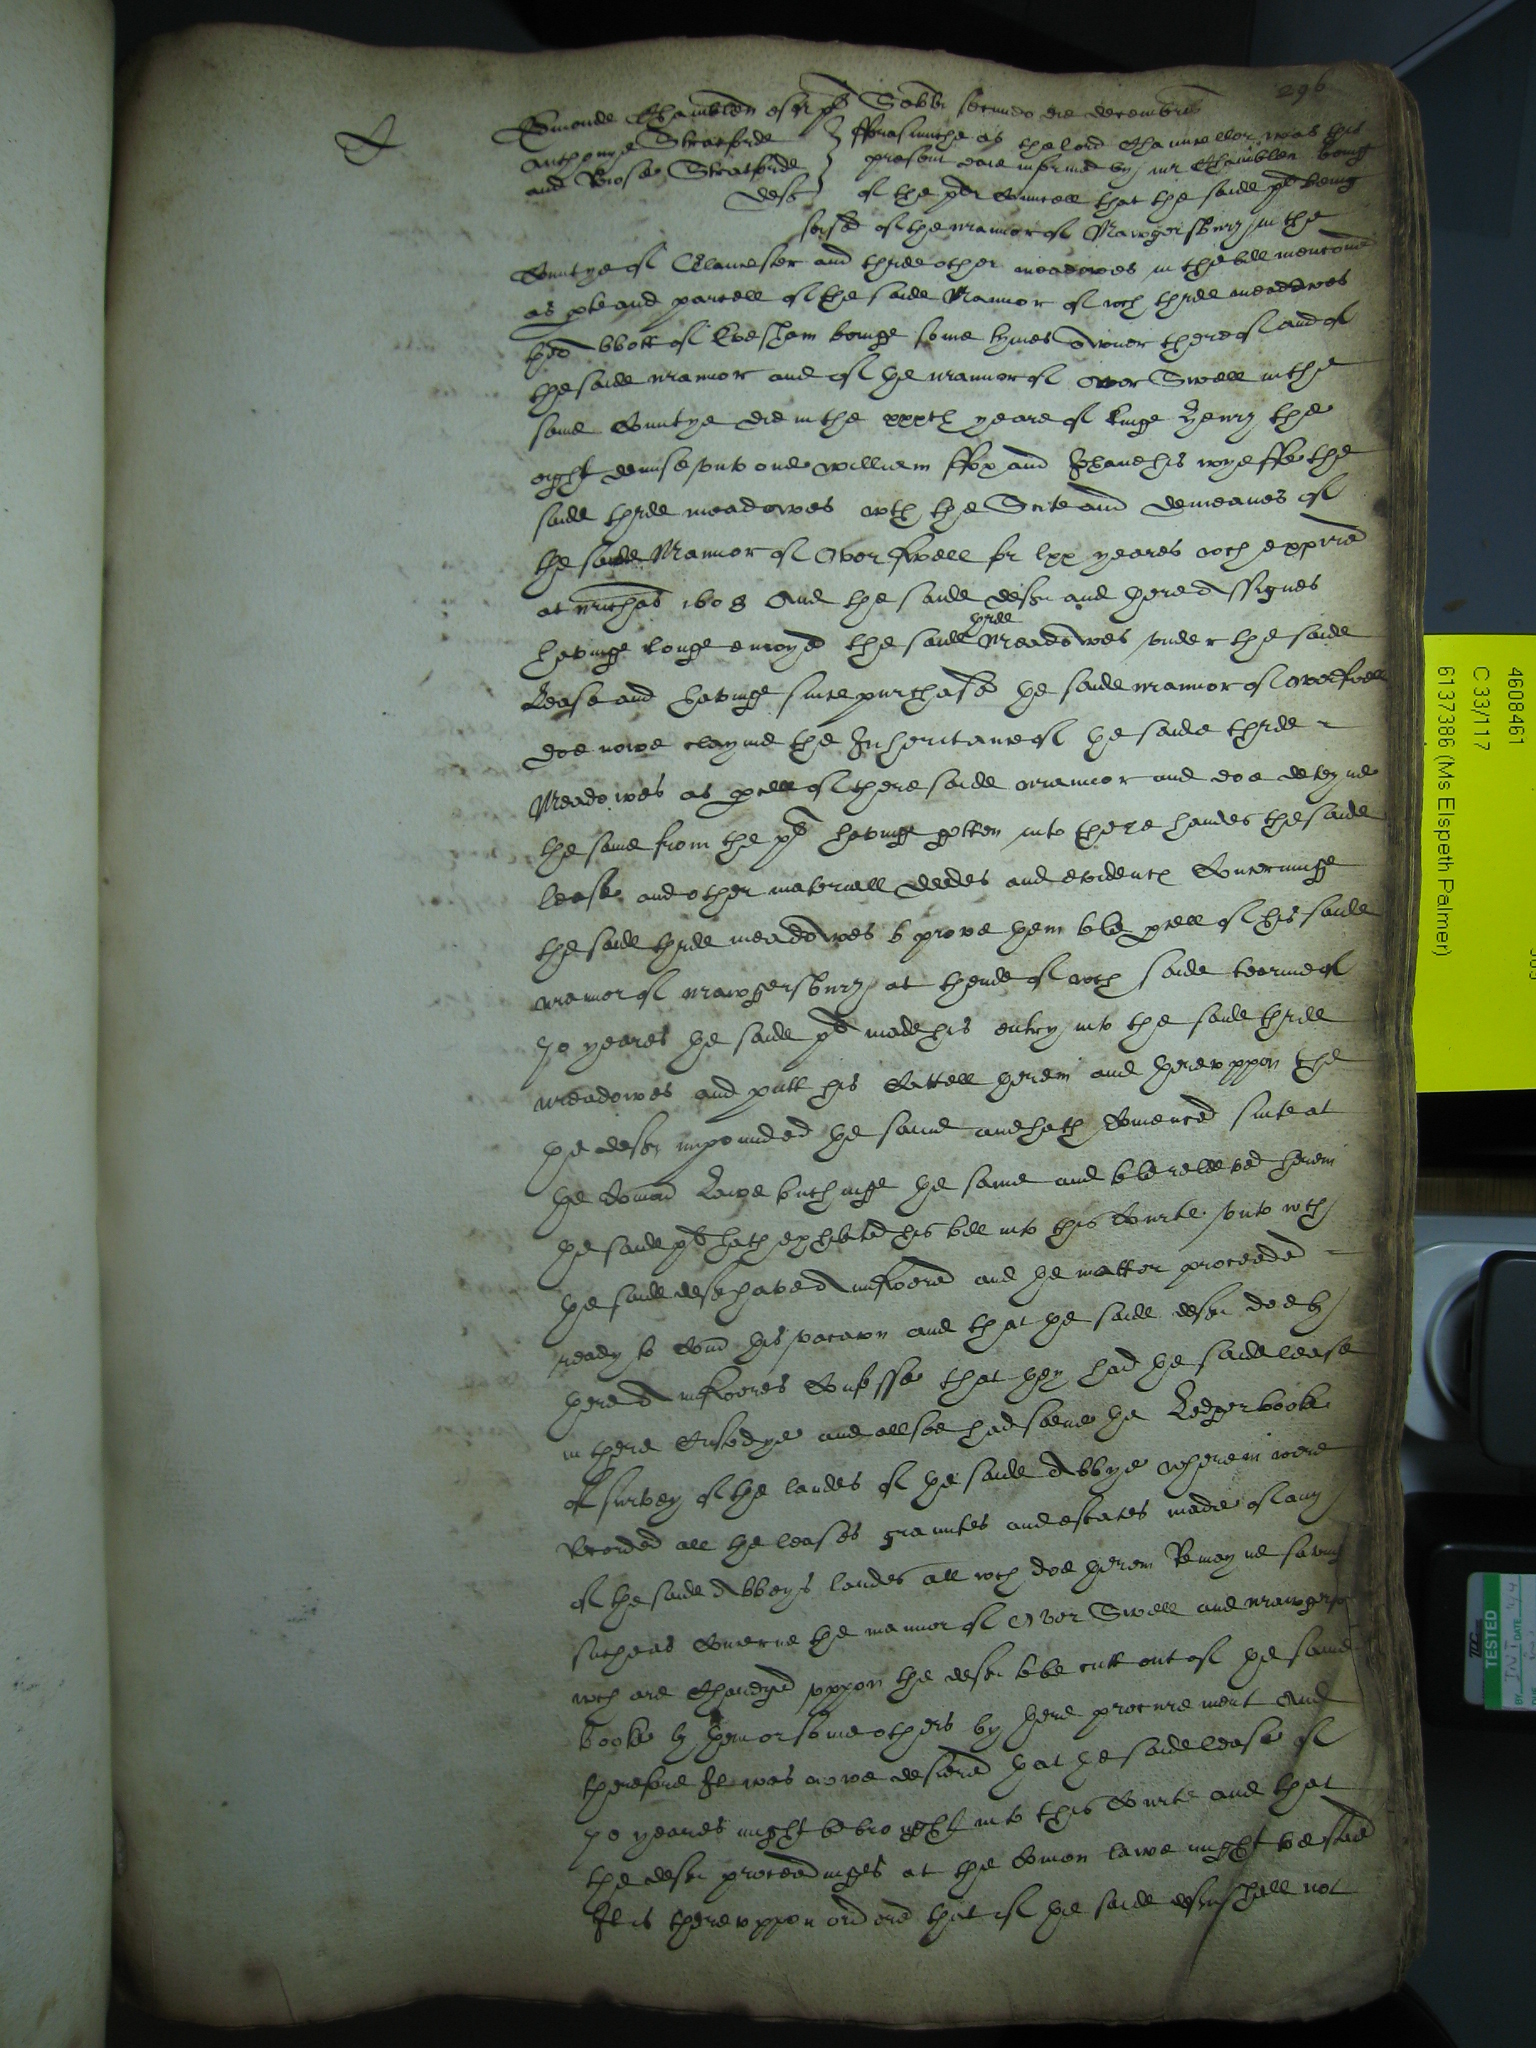 296
C
Edmonde Chamblen esqr pl Sabbi secundo die decembris
Anthonye Stratforde } fforasmuche as the lord Chauncellor was this
and Moses Stratforde } present daie informed by mr Chamblen being
deftes } of the pl Councell that the saide pl being
seised of the mannor of Mawgersbury in the
Countye of Glouc and three other meadowes in the bill mencioned
as pte and parcell of the saide Mannor of wch three meadowes
the Abbott of Evesham beinge some tymes Owner thereof and of
the saide mannor and of the mannor of Over Swell in the
same Countye did in the xxxth yeare of kinge Henry the
eight demise vnto one william ffox and Jhane his wyeffe the
saide three meadowes wth the Scite and demeanes of
the saide Mannor of Over swell for lxx yeares wch expired
at michas 1608 And the saide deftes and there Assignes
havinge longe enioyed the saide three Meadowes vnder the saide
Lease and havinge since purchased the saide mannor of Overswell
doe nowe clayme the Inheritance of the saide three
Meadowes as pcell of there saide mannor and doe deteyne
the same from the pl havinge gotten into there handes the saide
lease and other materiall deedes and evidence Concerninge
the saide three meadowes to prove them to be pcell of his saide
mannor of mawgersbury at thende of wch saide tearme of
70 yeares the saide pl made his entry into the saide three
meadowes and putt his Cattell therein and therevppon the
the deftes impounded the same and hath Comenced suite at
the Comon Lawe touchinge the same and to be releeved therein
the saide pl hath exhibited his bill into this Courte vnto wch
the saide deftes have Answered and the matter proceeded
ready to Comd this vacacon and that the saide deftes doe by
there Answeres Confesse that they had the saide lease
in there Custodye and allsoe had seene the Ledger booke
of survey of the landes of the saide Abbye wherein were
Recorded all the leases grauntes and estates made of any
of the saide Abbeys landes all wch doe therein Remayne saving
suche as Concerne the mannor of Over Swell and mawgersb
wch are Chardged vppon the deftes to be cutt out of the same
booke by them or some others by there procurement And
therefore It was nowe desiered that the saide lease of
70 yeares might be brought into this Courte and that
the deftes proceedinges at the Comon lawe might be staied
It is therevppon ordered that if the saide deftes shall not
4608461
C 33/117
6137386 (Ms Elspeth Palmer)
TESTED
BY
DATE